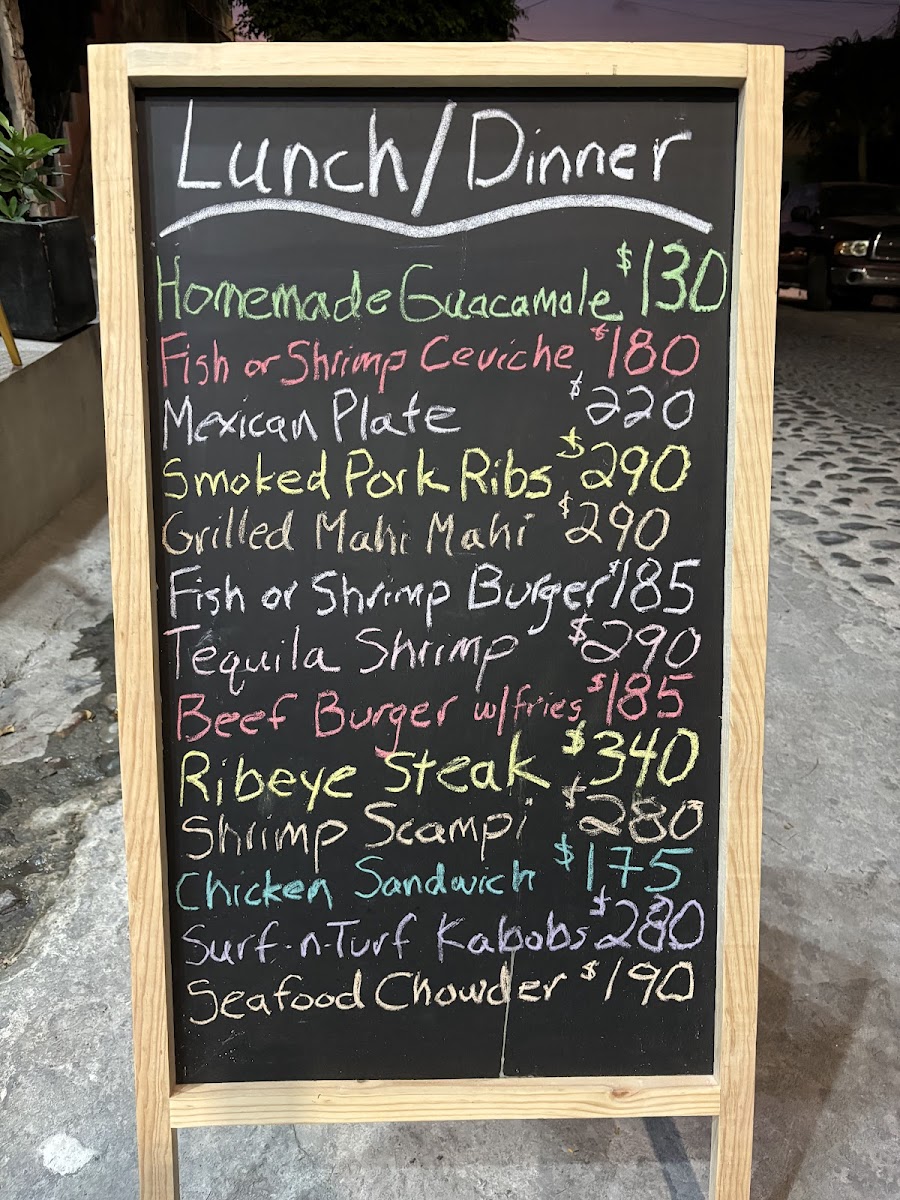 Lunch/Dinner
Homemade Guacamole $130
Fish or Shrimp Ceviche $180
Mexican Plate $220
Smoked Pork Ribs $290
Grilled Mahi Mahi $290
Fish or Shrimp Burger $185
Tequila Shrimp $290
Beef Burger w/fries $185
Ribeye Steak $340
Shrimp Scampi $280
Chicken Sandwich $175
Surf-n-Turf Kabobs $280
Seafood Chowder $190